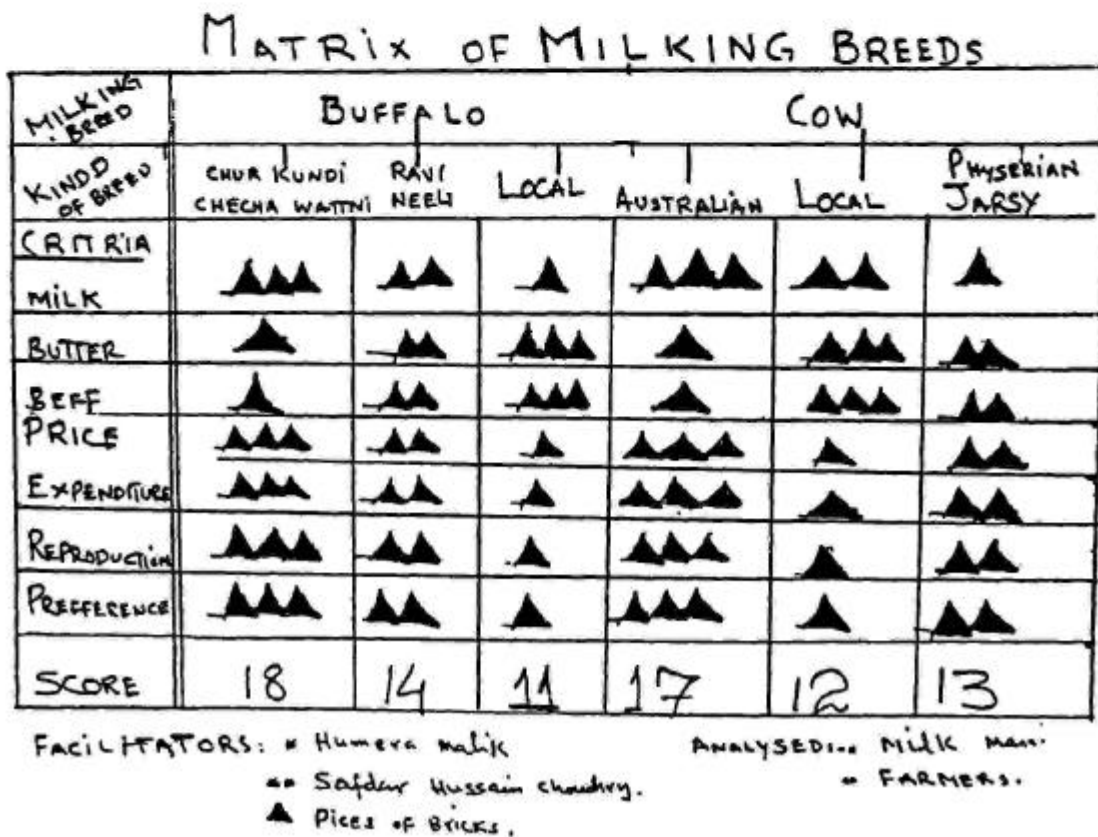 MATRIX OF MILKING BREEDS
MILKING BREED BUFFALO COW
KINDD OF BREED CHUR KUNDI CHECHA WATTNI RAVI NEELI LOCAL AUSTRALIAN LOCAL PHYSERIAN JARSY
CRITRIA
MILK
BUTTER
BEFF
PRICE
EXPENDITURE
REPRODUCTION
PREFFERENCE
SCORE 18 14 11 17 12 13
FACILITATORS: Humera malik ANALYSED: MILK
Safdar Hussain choudhry. FARMERS.
Pices of Bricks.